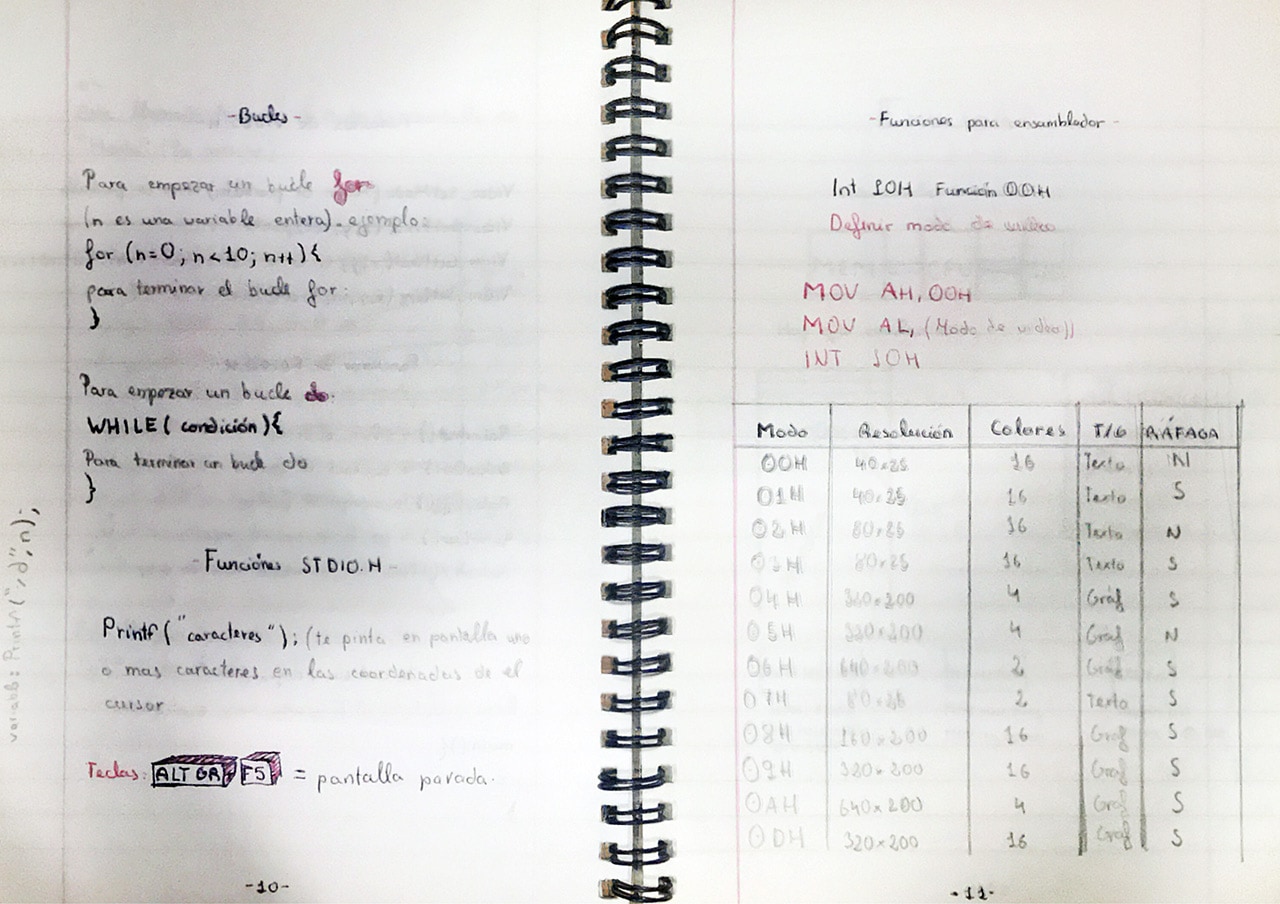 -Bucles-
Para empezar un bucle for
(n es una variable entera). ejemplo:
for (n=0; n<10; n++){
para terminar el bucle for:
}
Para empezar un bucle do:
WHILE( condición){
Para terminar un bucle do
}
-Funciones STDIO.H-
Printf("caracteres"); (te pinta en pantalla uno
o mas caracteres en las coordenadas de el
cursor.
Teclas: ALT GR F5 = pantalla parada.
variable: Printf("%d",n);
-10-
-Funciones para ensamblador-
Int 10H Función 00H
Definir modo de video
MOV AH, 00H
MOV AL, (Modo de video))
INT 10H
Modo Resolución Colores T/G RÁFAGA
00H 40x25 16 Texto N
01H 40x25 16 Texto S
02H 80x25 16 Texto N
03H 80x25 16 Texto S
04H 320x200 4 Gráf S
05H 320x200 4 Graf N
06H 640x200 2 Gráf S
07H 80x25 2 Texto S
08H 160x200 16 Graf S
09H 320x200 16 Graf S
0AH 640x200 4 Graf S
0DH 320x200 16 Graf S
-11-